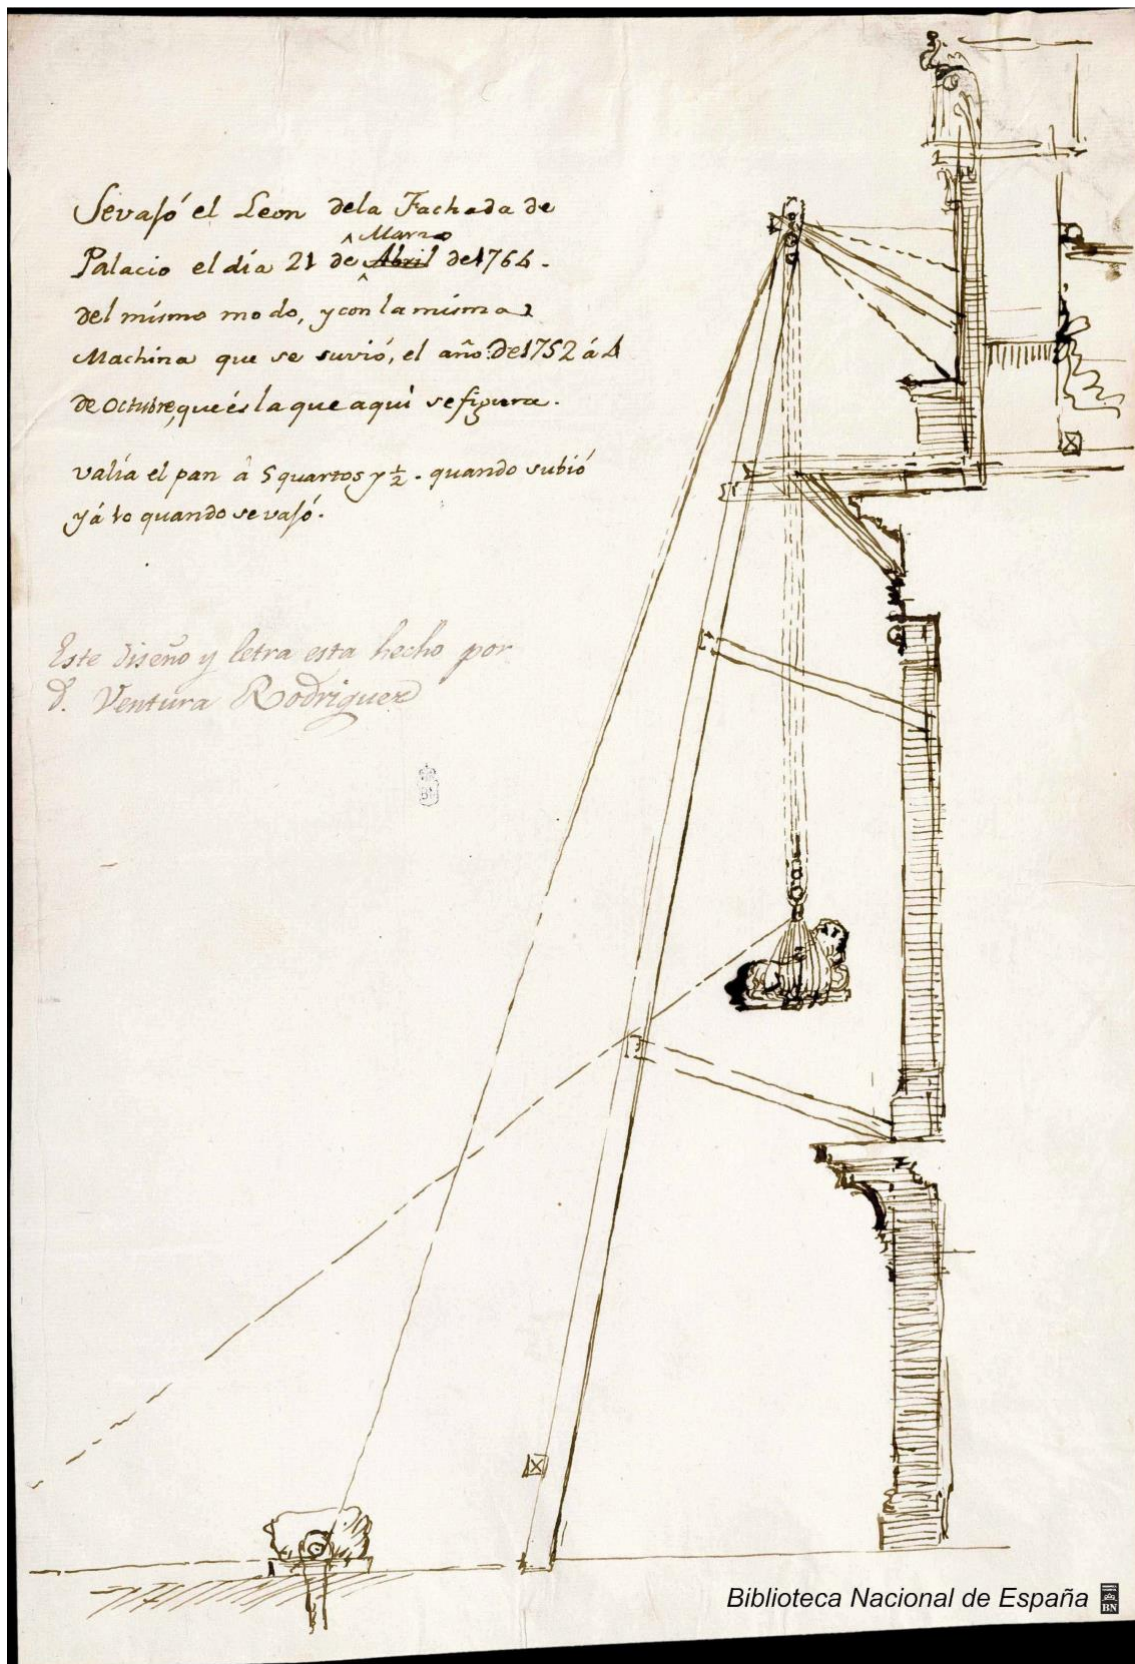 Sevajó el Leon dela Fachada de
Marzo
Palacio el día 21 de Abril de 1764.
del mismo modo, y con la misma
Machina que se suvió, el año de 1752 á 4
de Octubre, que és la que aquí se figura.
valía el pan à 5 quartos y ½. quando subió
y á 10 quando se vajó.
Este diseño y letra esta hecho por
D. Ventura Rodriguez
BN
Biblioteca Nacional de España
BN